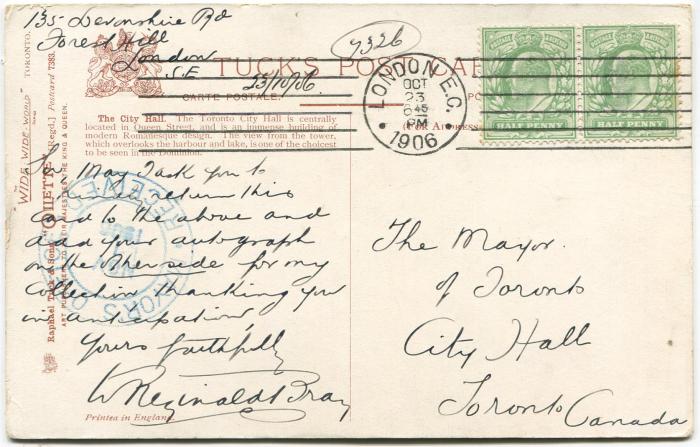 135 Devonshire Rd
Forest Hill
London
S.E
23/10/06
7326
TUCK'S POST CAR
CARTE POSTALE.
(FOR ADDRESS
LONDON E.C.
OCT
23
6 45
PM
1906
HALF PENNY
HALF PENNY
The City Hall. The Toronto City Hall is centrally
located in Queen Street, and is an immense building of
modern Romanesque design. The view from the tower,
which overlooks the harbour and lake, is one of the choicest
to be seen in the Dominion.
Sir, May I ask you to
return this
card to the above and
add your autograph
on the other side for my
collection thanking you
in anticipation
Yours faithfully
W Reginald Bray
Printed in England.
The Mayor
of Toronto
City Hall
Toronto Canada
"WIDE WIDE WORLD"
TORONTO.
Raphael Tuck & Sons' "OILETTE" [Regd.] Postcard 7383.
ART PUBLISHERS TO THEIR MAJESTIES THE KING & QUEEN.
RECEIVED
MAYOR'S OFFICE
NOV
1906